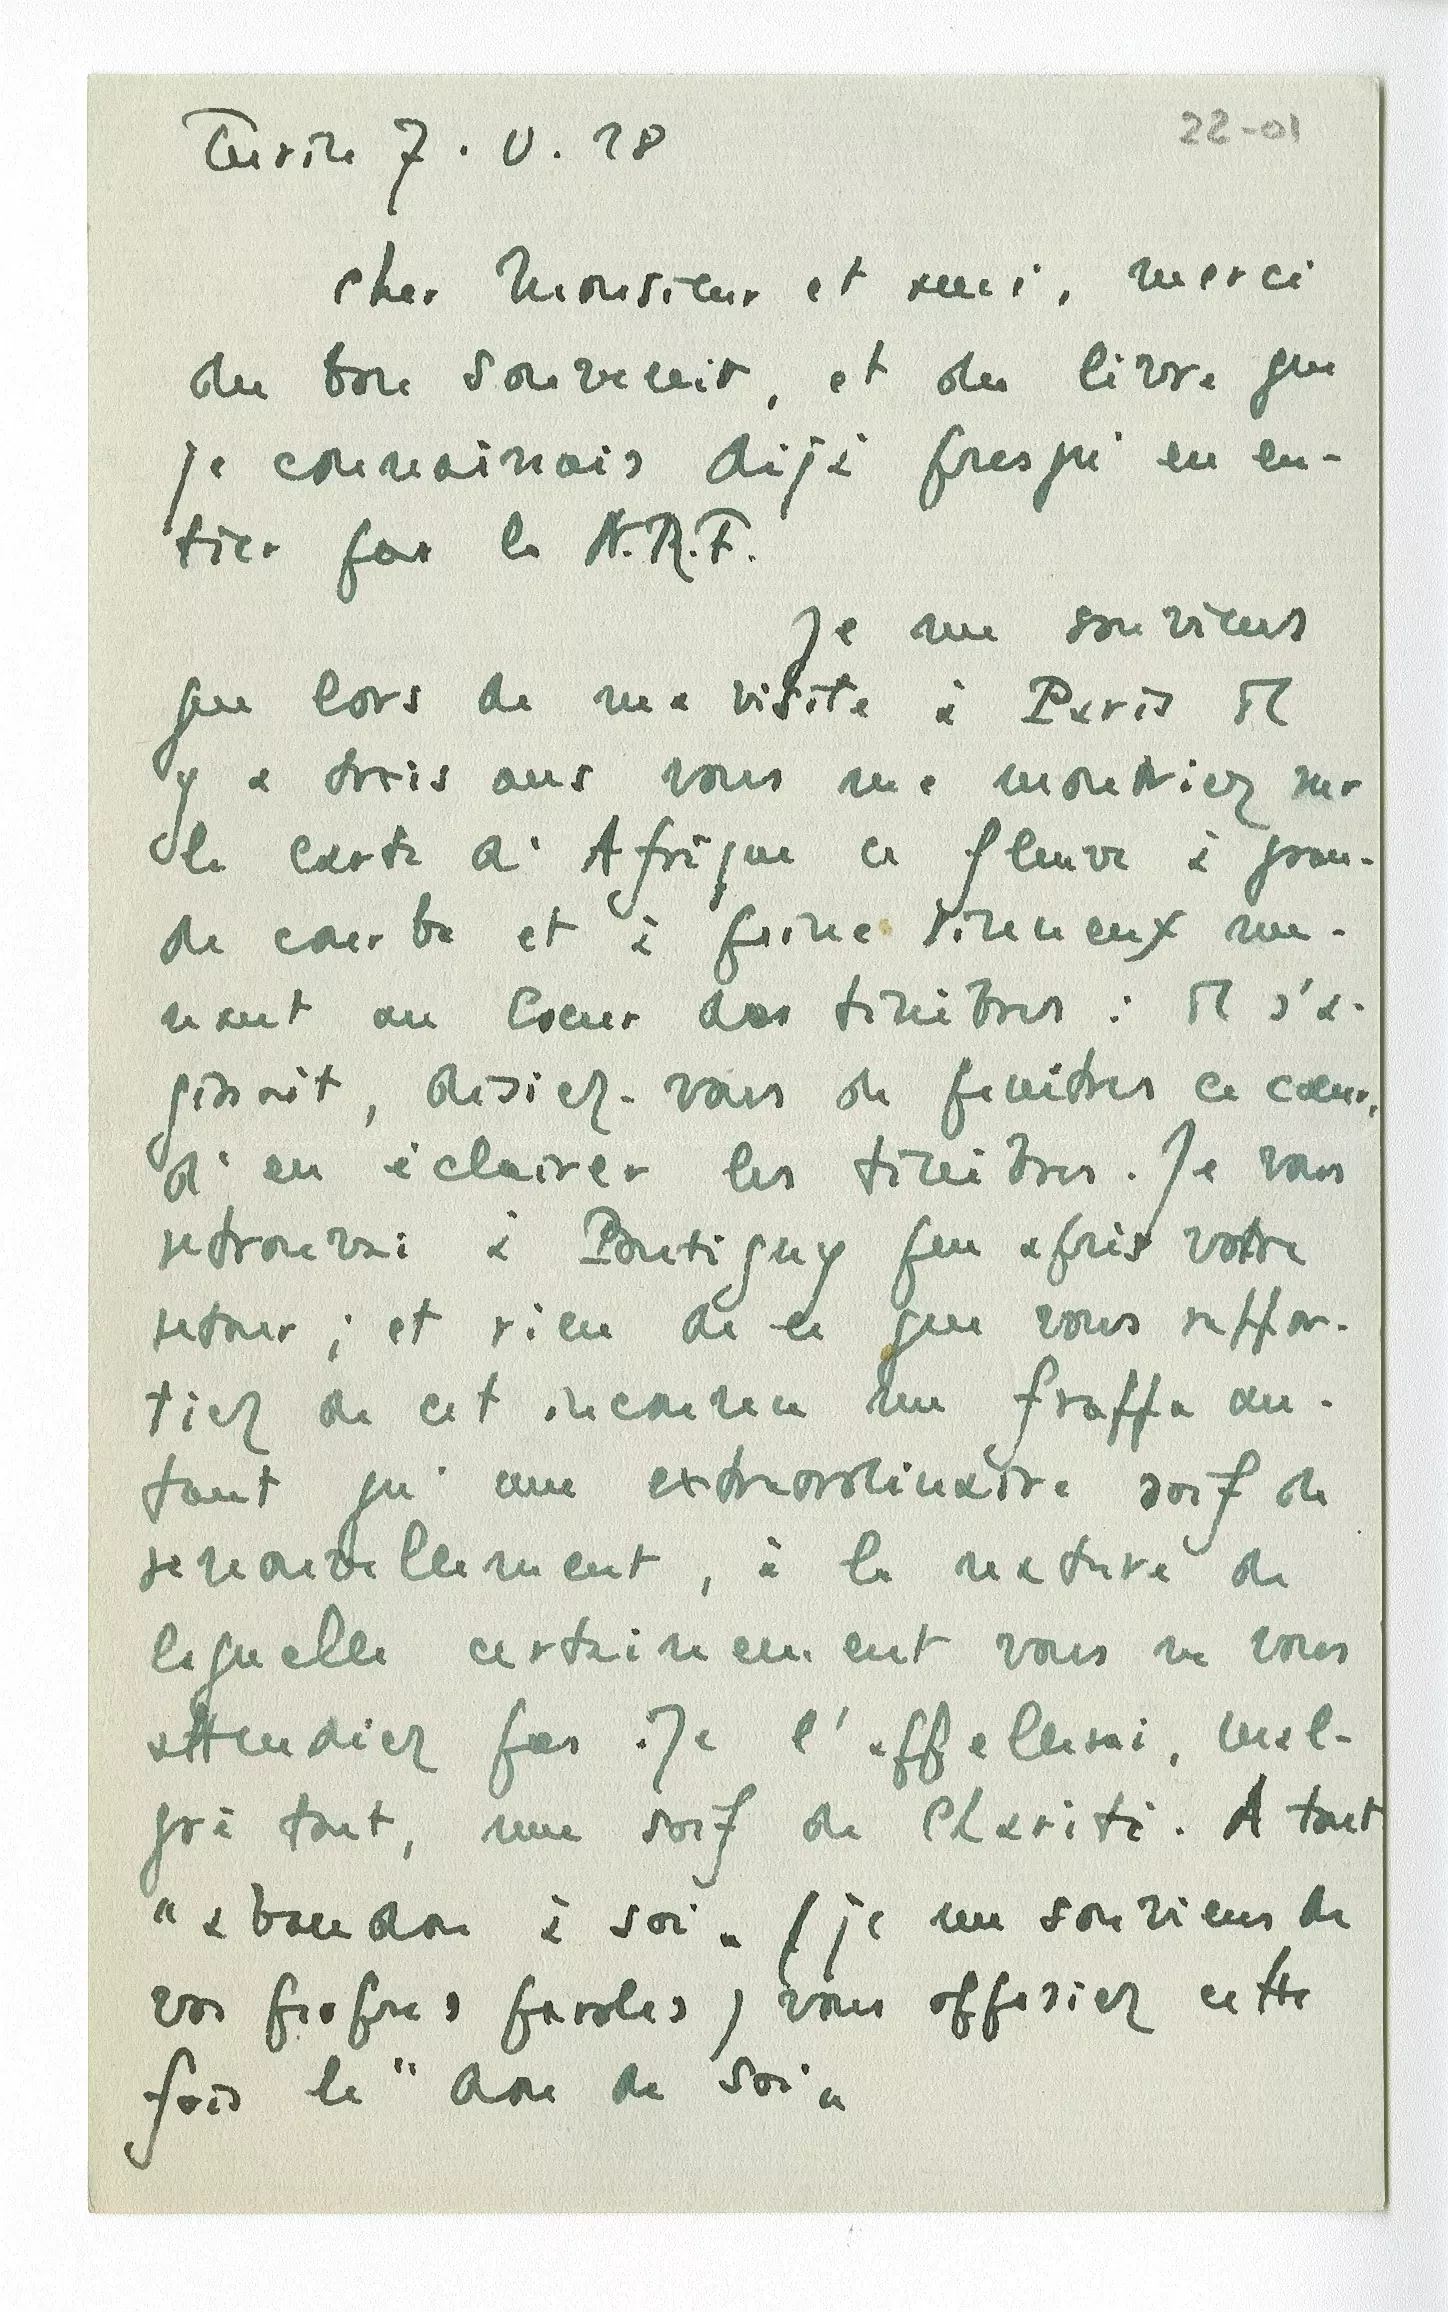 Turin 7. V. 28
22-01
Cher Monsieur et ami, merci
du bon souvenir, et du livre que
je connaissais déjà presqu'en en-
tier par la N.R.F.
Je me souviens
que lors de ma visite à Paris il
y a trois ans vous me montriez sur
la carte d'Afrique ce fleuve à gran-
de courbe et à peine sinueux me-
nant au Coeur des ténèbres : il s'a-
gissait, disiez-vous de pénétrer ce coeur,
d'en éclairer les ténèbres. Je vous
retrouvai à Pontigny peu après votre
retour ; et rien de ce que vous rappor-
tiez de cet inconnu me frappa au-
tant qu'une extraordinaire soif de
renouvellement, à la nature de
laquelle certainement vous ne vous
attendiez pas. Je l'appellerai, mal-
gré tout, une soif de Charité. A tout
"abandon à soi" (je me souviens de
vos propres paroles) vous opposiez cette
fois le "don de soi"